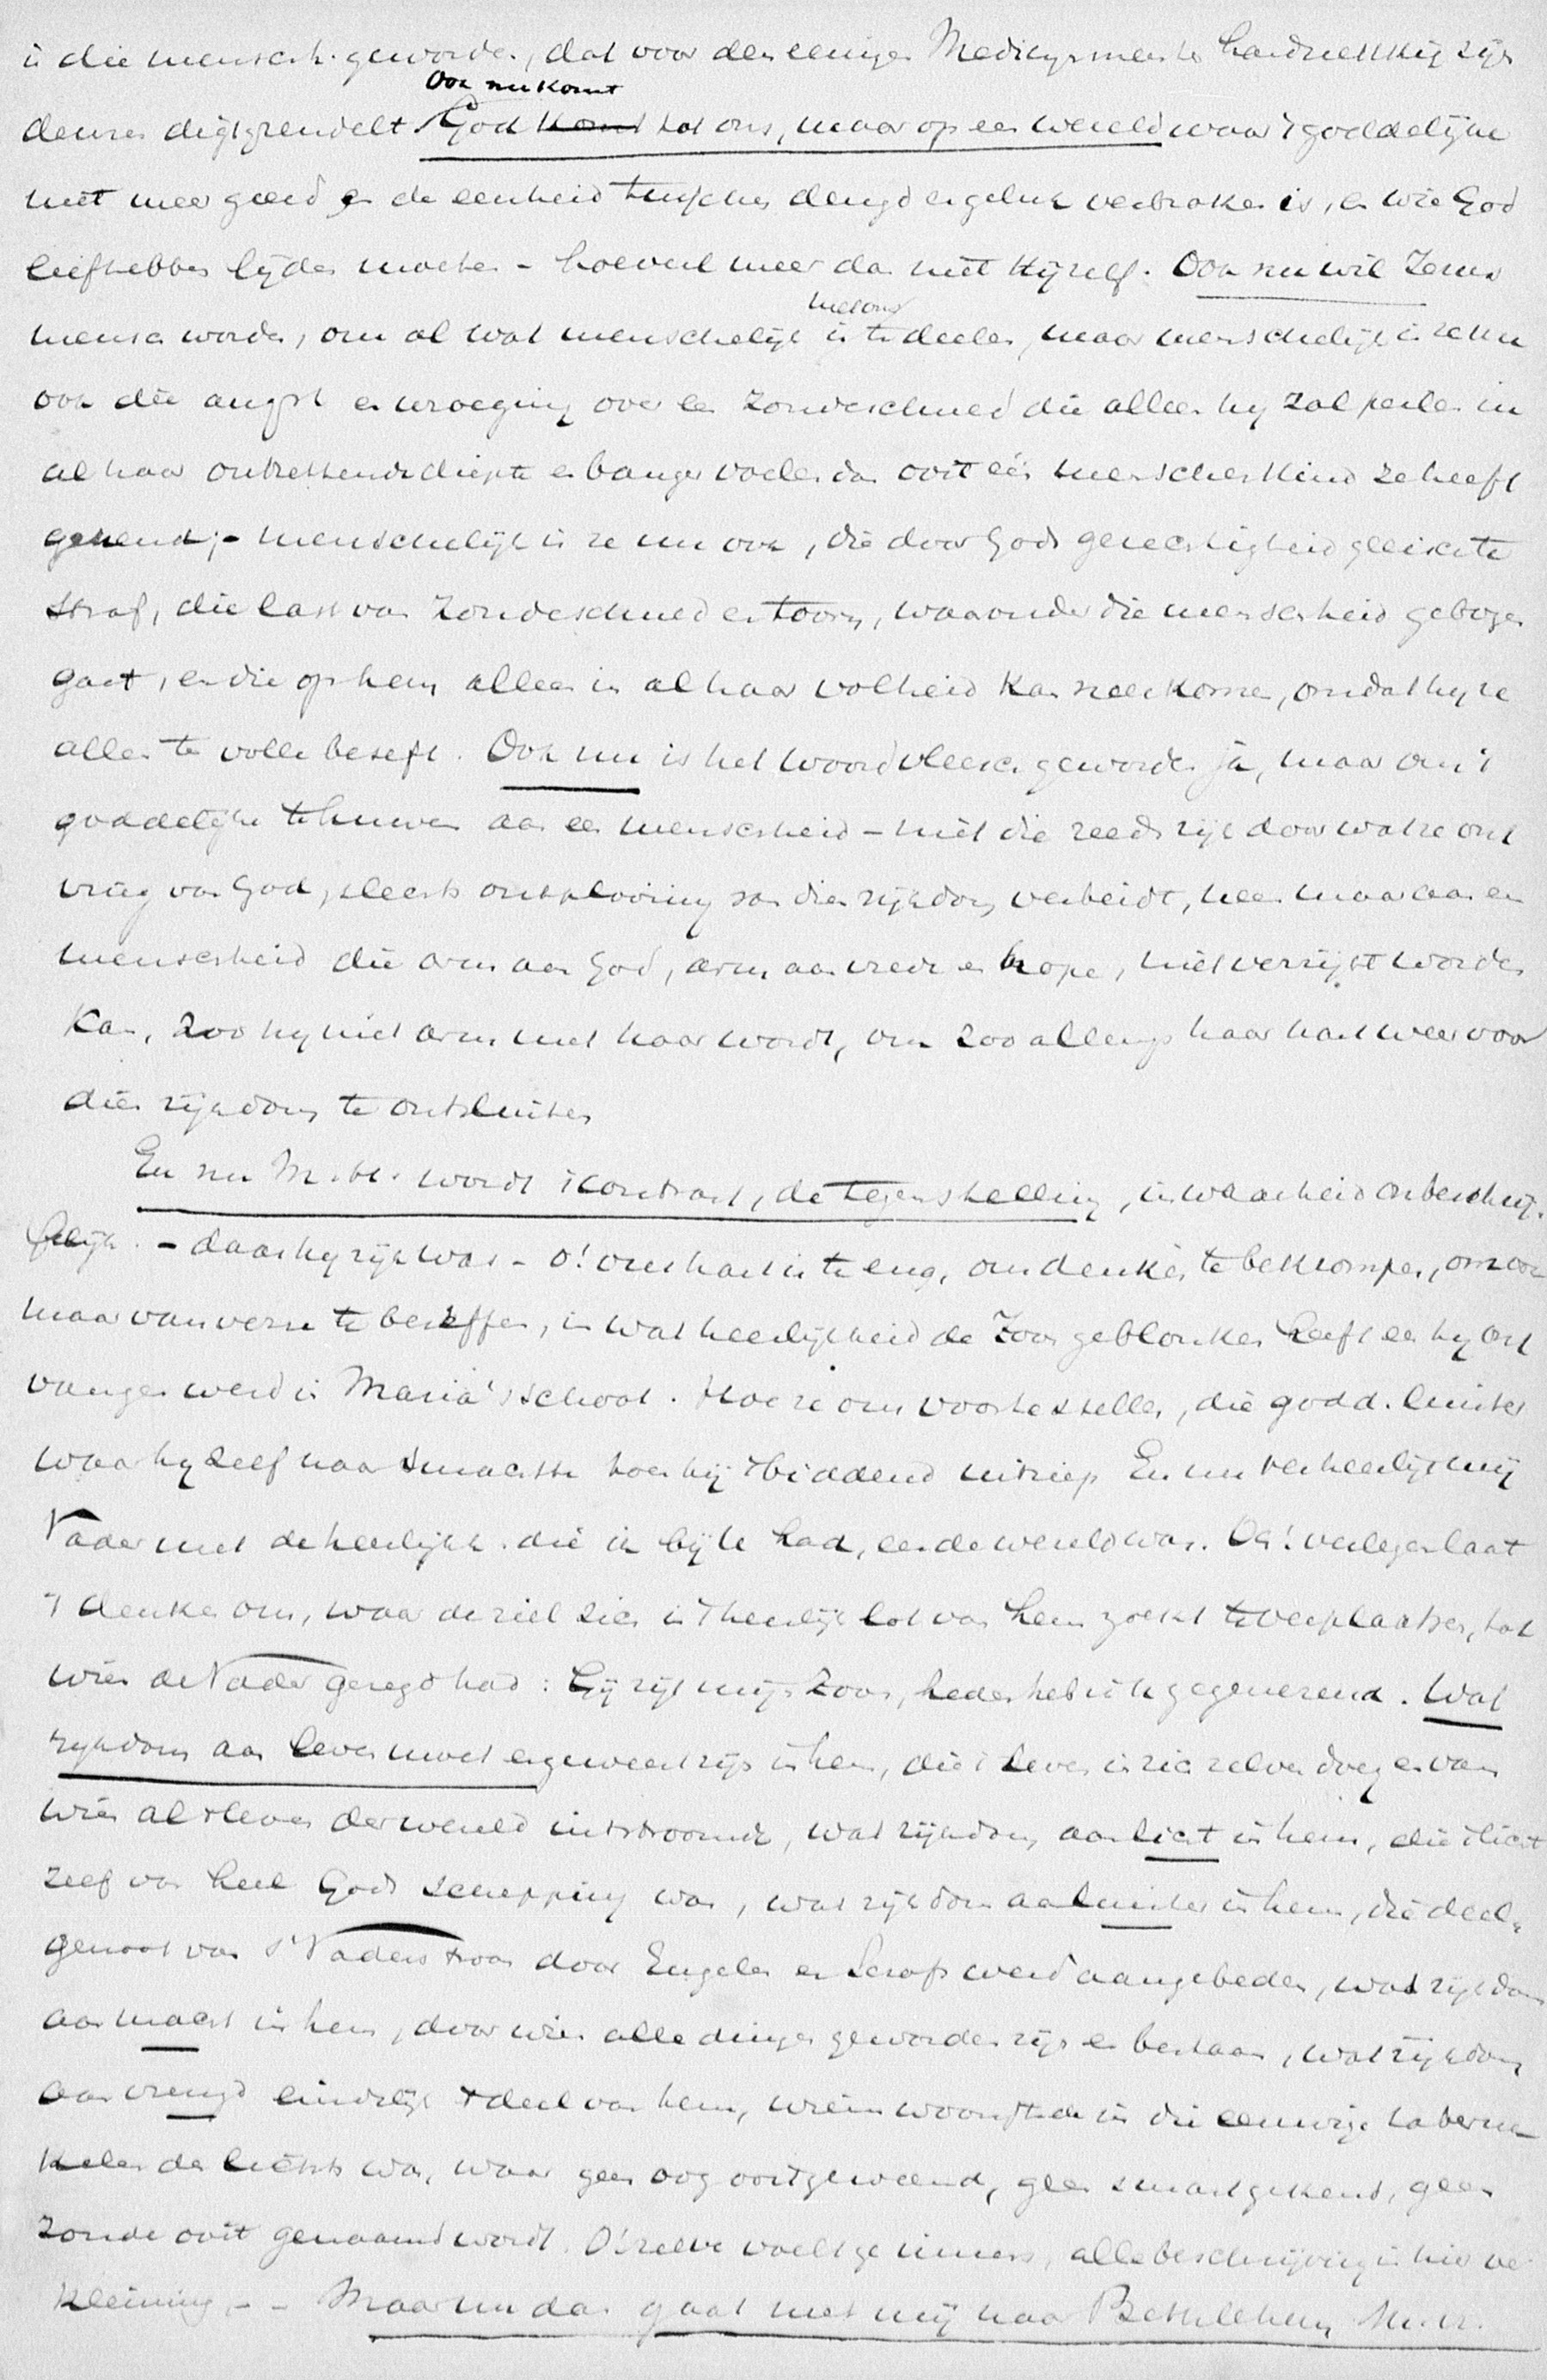 is die mensch. geworden, dat voor den eenigen Medicynmeester hardnekkig zijn
Ook nu komt
deuren digtgrendelt. God komt tot ons, maar op een wereld waar 't goddelijke
niet meer goed en de eenheid tusschen deugd en geluk verbroken is, en wie God
liefhebben lijden moeten - hoeveel meer dan niet Hijzelf. Ook nu wil Jezus
met ons
mensch worden, om al wat menschelijk is te deelen, maar menschelijk is ze nu
ook die angst en wroeging over een zondeschuld die alleen hy zal peilen in
al haar ontzettende diepte en banger voelen dan ooit één menschenkind ze heeft
gekend; - menschelijk is ze nu ook, die door Gods geregtigheid geëischte
straf, die last van zondeschuld en toorn, waaronder die menschheid gebogen
gaat, en die op hem alleen in al haar volheid kan neerkomen, omdat hy ze
alleen te volle beseft. Ook nu is het woord vleesch geworden ja, maar om 't
goddelijke te huwen aan een menschheid - niet die reeds rijk door wat ze ont
ving van God, slechts ontplooiing van dien rijkdom verbeidt, neen maar aan een
menschheid die arm aan God, arm aan vrede en hope, niet verrijkt worden
kan, zoo hy niet arm met haar wordt, om zoo allengs haar hart weer voor
dien rijkdom te ontsluiten
En nu M. H. wordt 't contrast, de tegenstelling, in waarheid onbeschrij-
felijk. - daar hy rijk was - o! ons hart is te eng, ons denken te bekrompen, om ook
maar van verre te beseffen, in wat heerlijkheid de Zoon geblonken heeft eer hy ont
vangen werd in Maria's schoot. Hoe ze ons voor te stellen, die godd. luister
waar hy zelf naar smachtte toen hij biddend uitriep En nu verheerlijk mij
Vader met de heerlijkh. die ik bij U had, eer de wereld was. Och! verlegen laat
't denken ons, waar de ziel zich in 't heerlijk lot van hem zoekt te verplaatsen, tot
wien de Vader gezegd had: Gij zijt mijn Zoon, heden heb ik U gegenereerd. Wat
rijkdom aan leven moet er geweest zijn in hem, die 't leven in zich zelven droeg en van
wien al 't leven der wereld uitstroomde, wat rijkdom aan licht in hem, die 't licht
zelf van heel Gods schepping was, wat rijkdom aan luister in hem, die deel-
genoot van s' Vaders troon door Engelen en Serafs werd aangebeden, wat rijkdom
aan macht in hem, door wien alle dingen geworden zijn en bestaan, wat rijkdom
aan vreugd eindelijk 't deel van hem, wiens woonstede in die eeuwige taberna
kelen des lichts was, waar geen oog ooit geweend, geen smart gekend, geen
zonde ooit genaamd wordt. O! zelve voelt ge immers, alle beschrijving is hier ver
kleining. - - Maar nu dan gaat met mij naar Bethlehem, M. H.